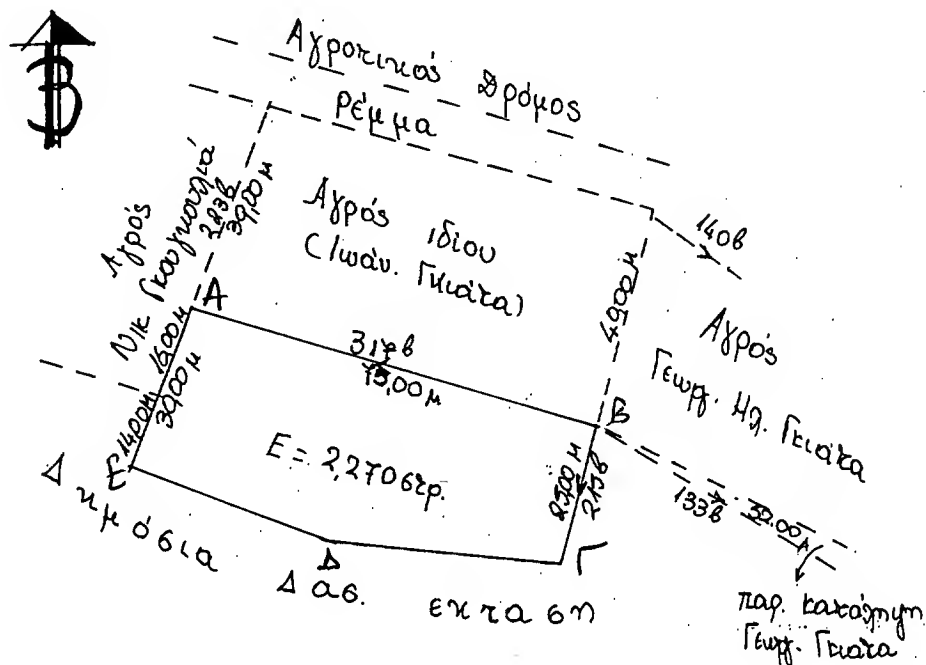 Β
Αγροτικός Δρόμος
ρέμμα
Αγρός
Νικ Γκουγκουλιά
223β
39,00 μ
Αγρός ιδίου
(Ιωάν. Γκιάτα)
140β
49,00 μ
Αγρός
Γεωργ. Ηλ. Γκιάτα
Α
16,00 μ
30,00 μ
14,00 μ
317β
75,00 μ
Β
Ε = 2,270 στρ.
25,00 μ
215β
133β 32.00 μ
Ε
Δ
Γ
Δημόσια
Δασ. εκταση
παρ. κατάληψη
Γεωργ. Γκιατα